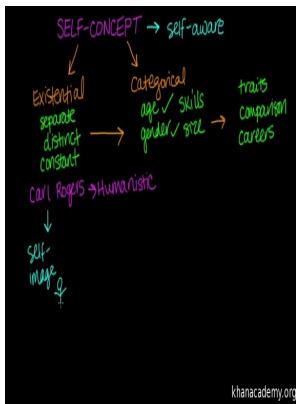 SELF-CONCEPT → self-aware
Existential
separate
distinct
constant
Categorical
age ✓ skills
gender ✓ size
traits
comparison
careers
Carl Rogers → Humanistic
self-
image
khanacademy.org